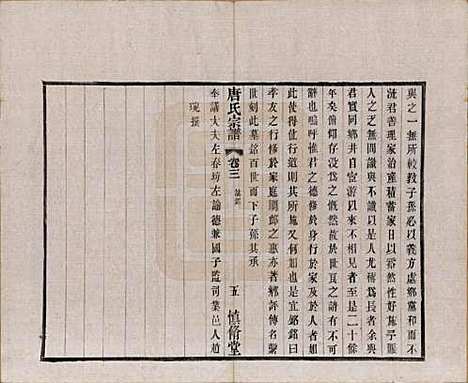 與之一無所較教子孫必以義方處鄉黨和而不
流君善理家治產積蓄家日以裕然性好施予賑
人之乏無間識與不識以是人尤偁為長者余與
君實同鄉井自宦游以來不相見者至是二十餘
年矣俯仰存沒為之慨然故於世真之請有不可
辭也嗚呼惟君之德修於身行於家及於人者如
此使得推行道則其所施又何如也是宜銘銘曰
孝友之行修於家庭周卹之惠亦著鄉評傳名襲
世刻此墓銘百世而下子孫其承
奉議大夫左春坊左諭德兼國子監司業邑人趙
琬撰
唐氏宗譜
卷三
墓銘
五
慎脩堂